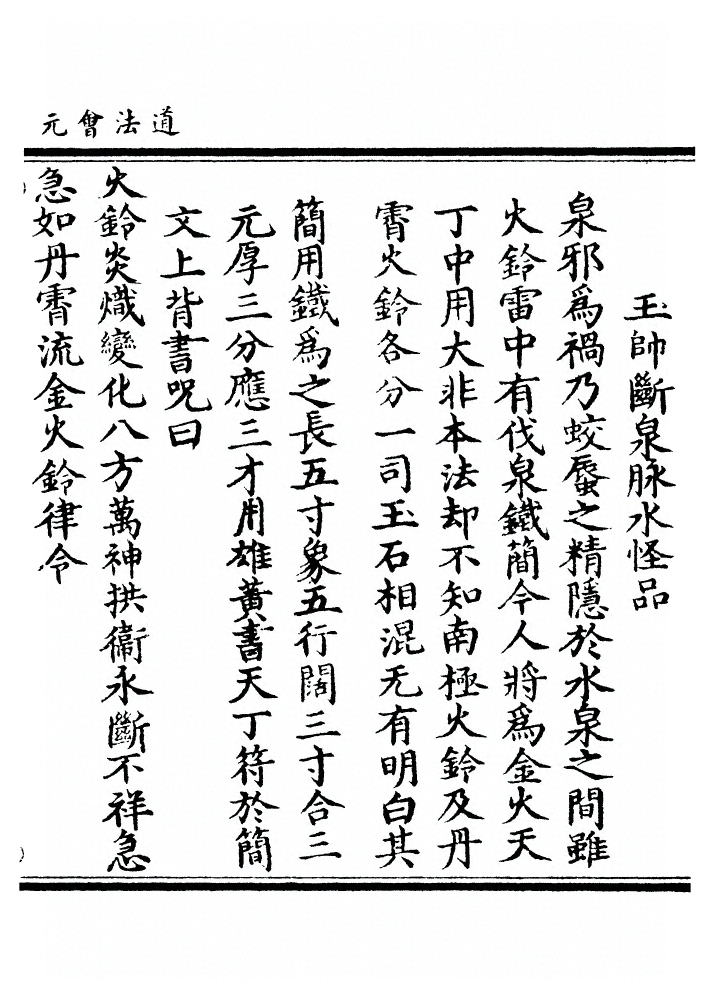 道法會元
玉帥斷泉脉水怪品
泉邪爲禍乃蛟蜃之精隱於水泉之間雖
火鈴雷中有伐泉鐵簡今人將爲金火天
丁中用大非本法却不知南極火鈴及丹
霄火鈴各分一司玉石相混无有明白其
簡用鐵爲之長五寸象五行闊三寸合三
元厚三分應三才用雄黃書天丁符於簡
文上背書呪曰
火鈴炎熾變化八方萬神拱衛永斷不祥急
急如丹霄流金火鈴律令